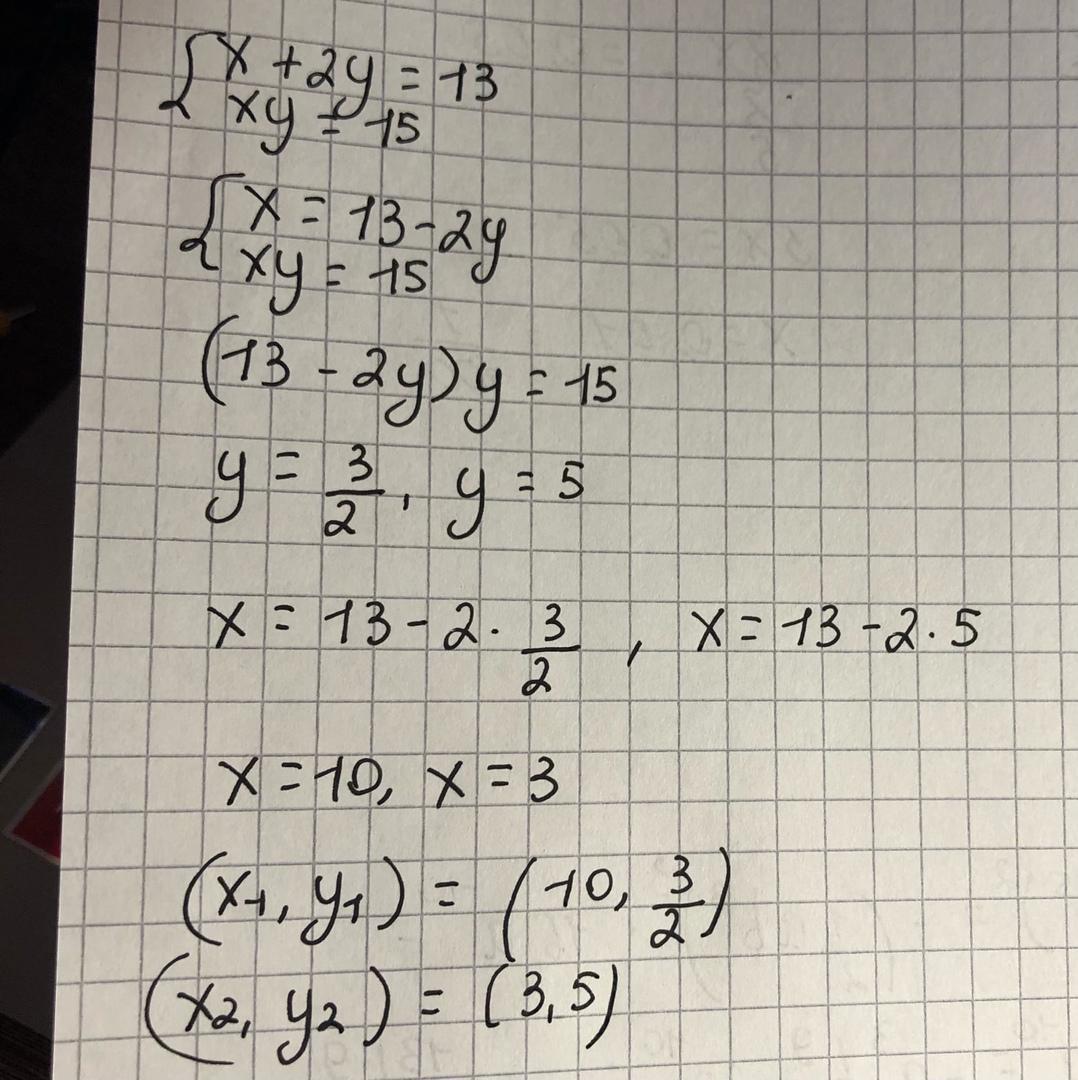 { x + 2y = 13
xy = 15
{ x = 13 - 2y
xy = 15
(13 - 2y) y = 15
y = 3/2, y = 5
x = 13 - 2 · 3/2 , x = 13 - 2 · 5
x = 10, x = 3
(x₁, y₁) = (10, 3/2)
(x₂, y₂) = (3, 5)